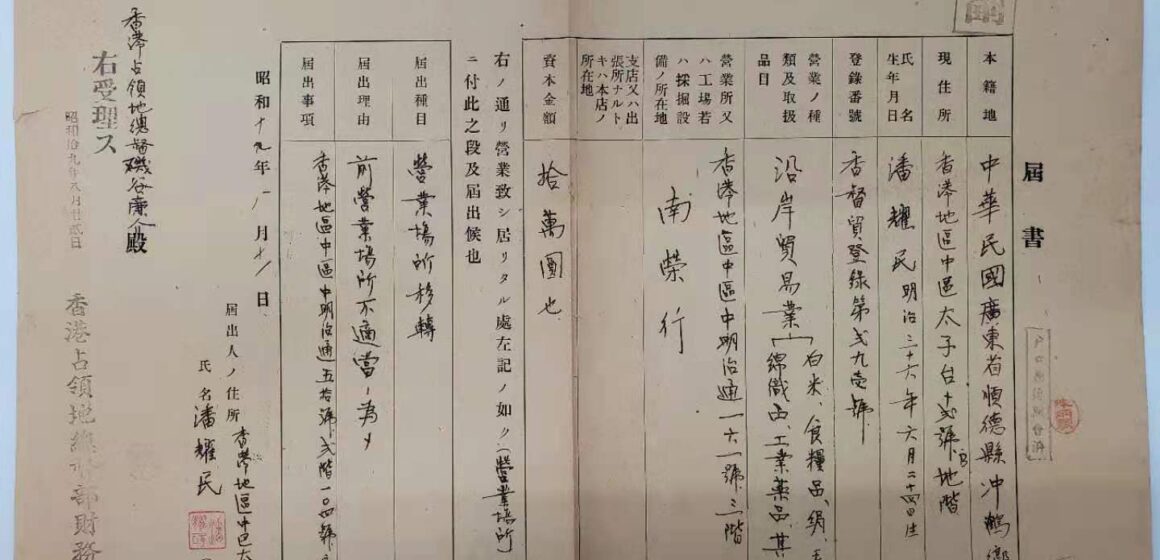 屆書
本籍地
中華民國廣東省順德縣沖鶴鄉
現住所
香港地區中區太子台十弍號B地階
氏名
生年月日
潘耀民明治三十六年六月二十四日生
登錄番號
香督貿登錄第弍九壱號
營業ノ種
類及取扱
品目
沿岸貿易業
白米、食糧品、絹
綿織品、工業藥品、其
營業所又
ハ工場若
ハ採掘設
備ノ所在地
香港地區中區中明治通一六一號三階
南榮行
支店又ハ出
張所ナルト
キハ本店ノ
所在地
資本金額
拾萬圓也
右ノ通リ營業致シ居リタル處左記ノ如ク(營業場所)
ニ付此之段及屆出候也
屆出種目
營業場所移轉
屆出理由
前營業場所不適當ノ為メ
屆出事項
香港地區中區中明治通五拾號弍階一〇四號
昭和十九年 月 日
屆出人ノ住所
香港地區中區太
氏名
潘耀民
香港占領地總督磯谷廉介殿
右受理ス
昭和拾九年八月廿弍日
香港占領地總督部財務